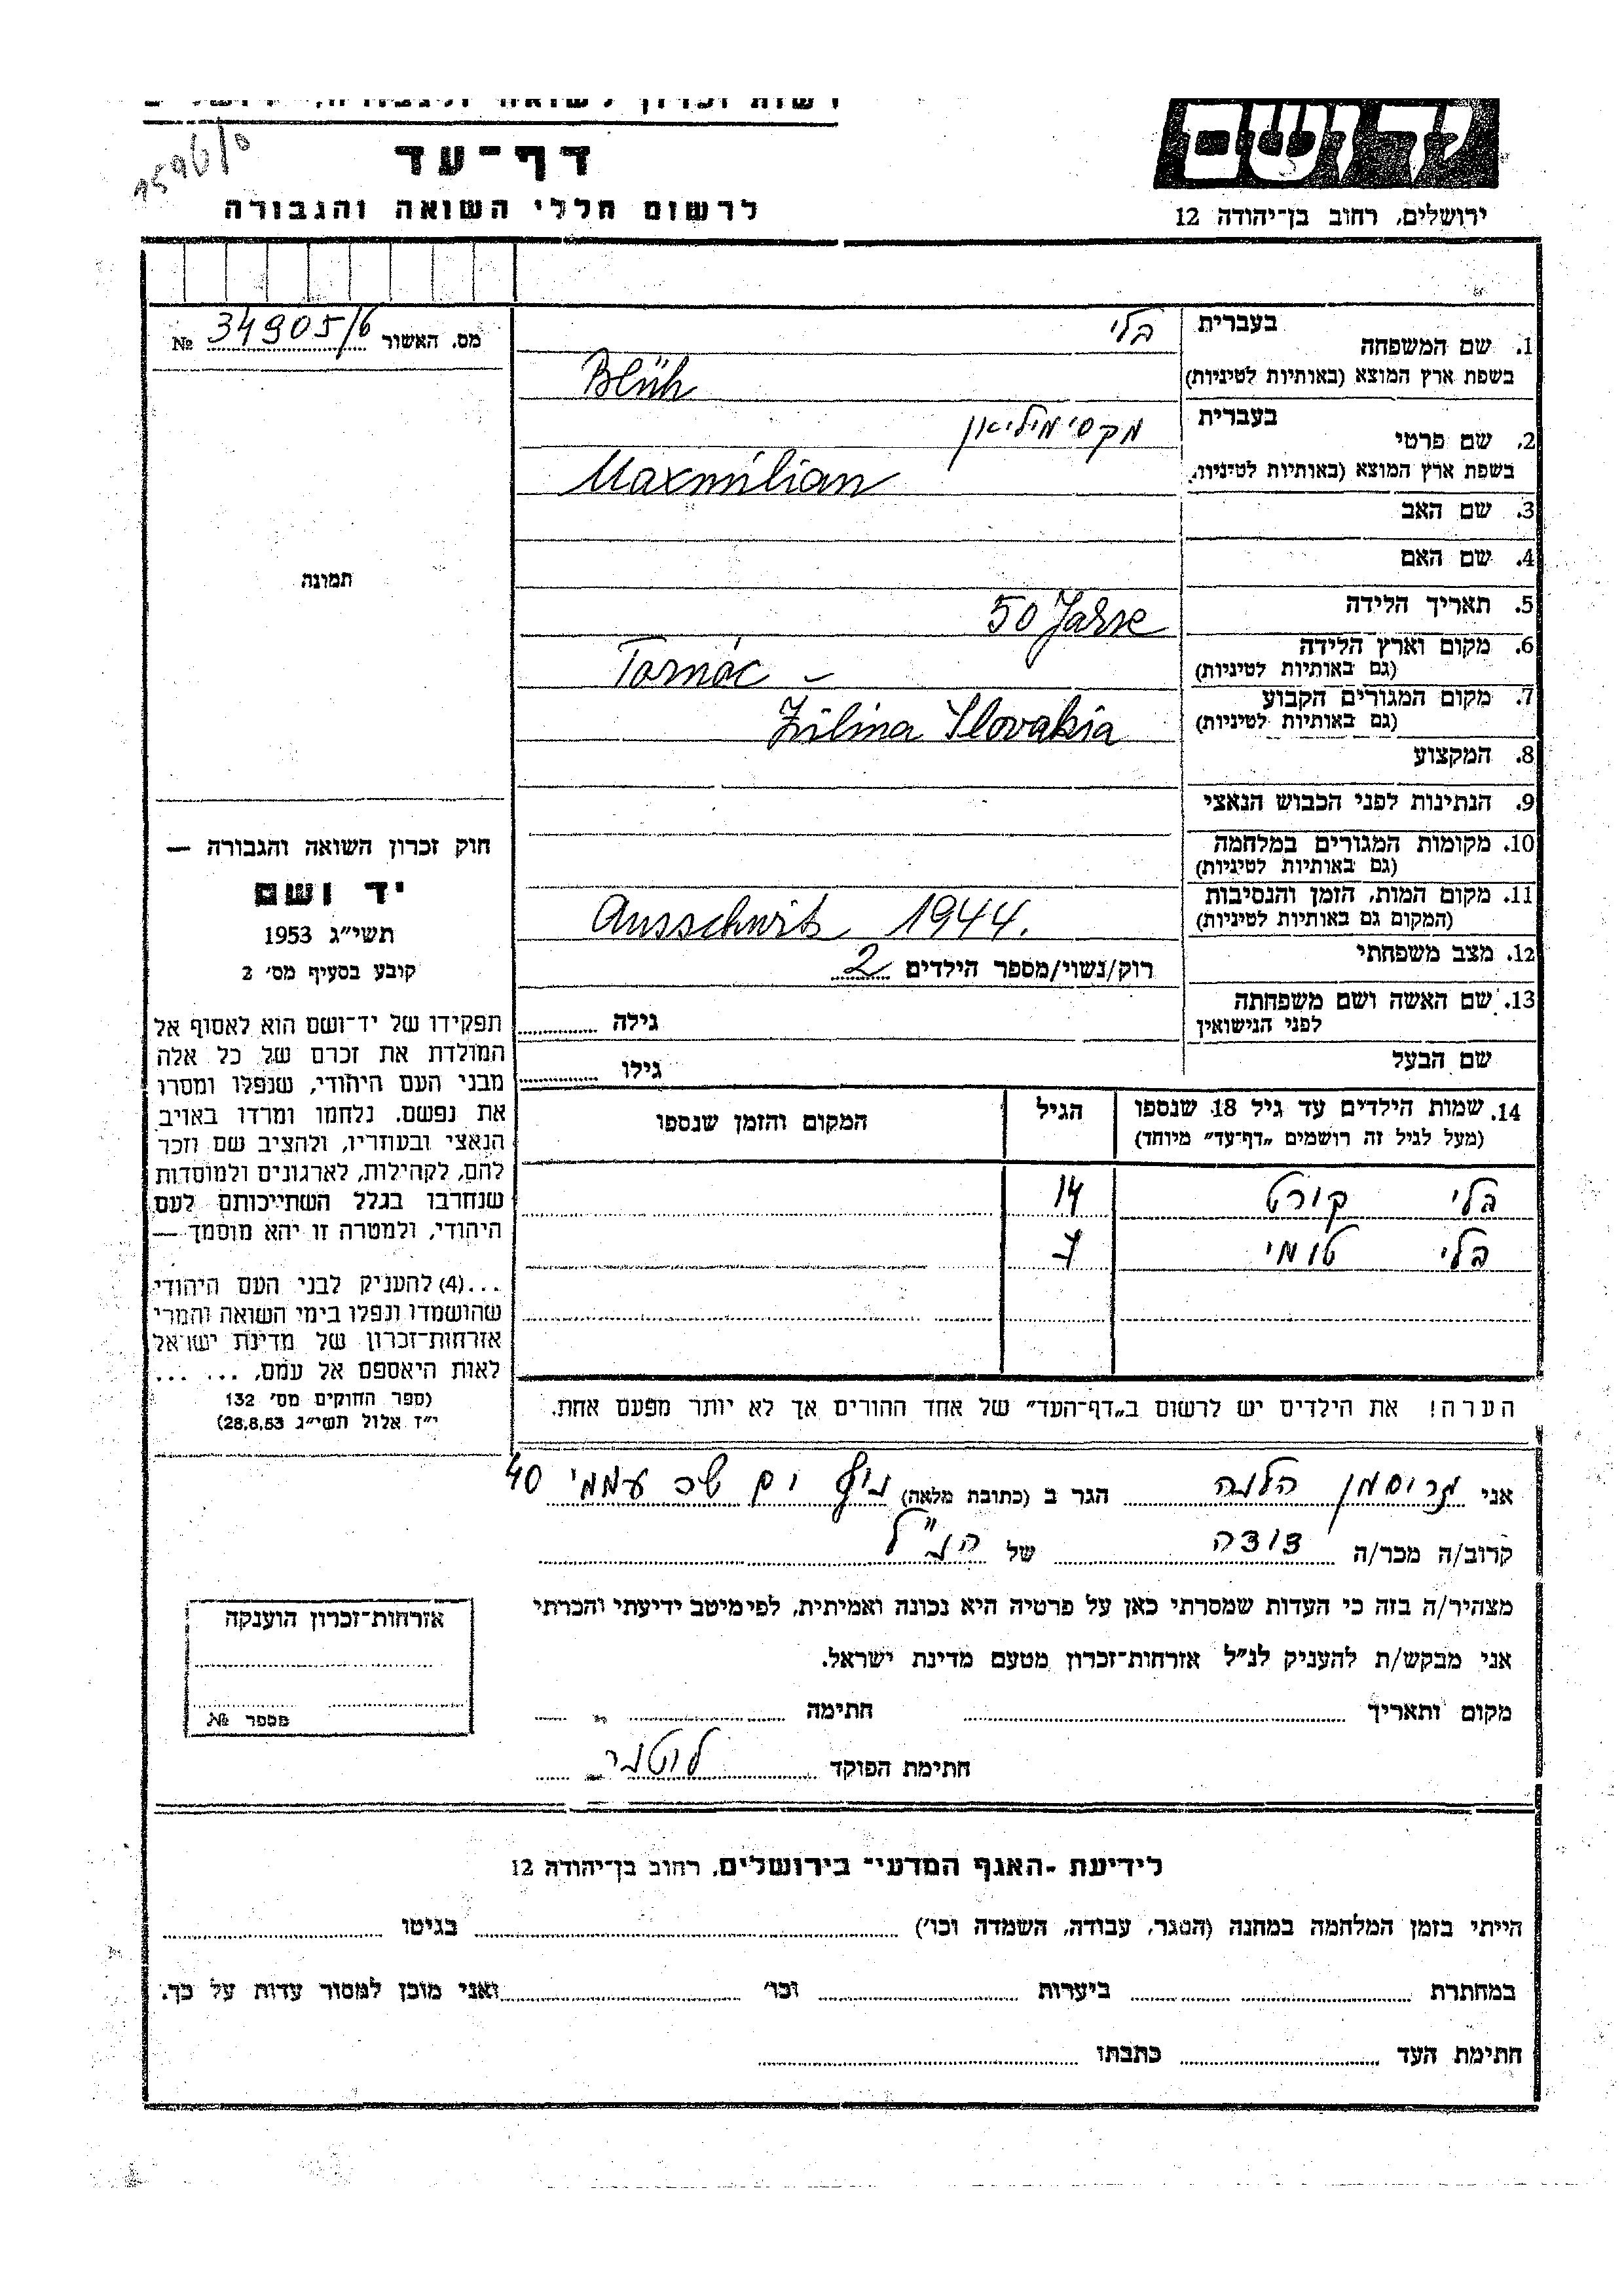 ידושם
ירושלים, רחוב בן־יהודה 12
דף־עד
לרשום חללי השואה והגבורה
מס. האשור 34905/6 №
תמונה
חוק זכרון השואה והגבורה —
יד ושם
תשי״ג 1953
קובע בסעיף מס׳ 2
תפקידו של יד־ושם הוא לאסוף אל
המולדת את זכרם של כל אלה
מבני העם היהודי, שנפלו ומסרו
את נפשם. נלחמו ומרדו באויב
הנאצי ובעוזריו, ולהציב שם וזכר
להם, לקהילות, לארגונים ולמוסדות
שנחרבו בגלל השתייכותם לעם
היהודי, ולמטרה זו יהא מוסמך —
...(4) להעניק לבני העם היהודי
שהושמדו ונפלו בימי השואה והמרי
אזרחות־זכרון של מדינת ישראל
לאות היאספם אל עמם. ... ...
(ספר החוקים מס׳ 132
י״ז אלול תשי״ג 28.8.53)
בעברית בלי
1. שם המשפחה
בשפת ארץ המוצא (באותיות לטיניות) Blüh
בעברית מקסימיליאן
2. שם פרטי
בשפת ארץ המוצא (באותיות לטיניות) Maxmilian
3. שם האב
4. שם האם
5. תאריך הלידה 50 Jahre
6. מקום וארץ הלידה
(גם באותיות לטיניות) –
7. מקום המגורים הקבוע
(גם באותיות לטיניות) Žilina Slovakia
8. המקצוע
9. הנתינות לפני הכבוש הנאצי
10. מקומות המגורים במלחמה
(גם באותיות לטיניות)
11. מקום המות, הזמן והנסיבות
(המקום גם באותיות לטיניות) Ausschwitz 1944.
12. מצב משפחתי
רוק/נשוי/מספר הילדים 2
13. שם האשה ושם משפחתה
לפני הנישואין
גילה
שם הבעל
גילו
14. שמות הילדים עד גיל 18 שנספו הגיל המקום והזמן שנספו
(מעל לגיל זה רושמים „דף־עד״ מיוחד)
בלי קורט 14
בלי טומי 7
הערה! את הילדים יש לרשום ב„דף־העד״ של אחד ההורים אך לא יותר מפעם אחת.
אני גרוסמן הלנה הגר ב (כתובת מלאה) נוף ים שכ עממי 40
קרוב/ה מכר/ה דודה של הנ״ל
מצהיר/ה בזה כי העדות שמסרתי כאן על פרטיה היא נכונה ואמיתית, לפי מיטב ידיעתי והכרתי
אני מבקש/ת להעניק לנ״ל אזרחות־זכרון מטעם מדינת ישראל.
מקום ותאריך חתימה
חתימת הפוקד
אזרחות־זכרון הוענקה
מספר №
לידיעת ־האגף המדעי־ בירושלים, רחוב בן־יהודה 12
הייתי בזמן המלחמה במחנה (הסגר, עבודה, השמדה וכו׳) בגיטו
במחתרת ביערות וכו׳ ואני מוכן למסור עדות על כך.
חתימת העד כתבתו